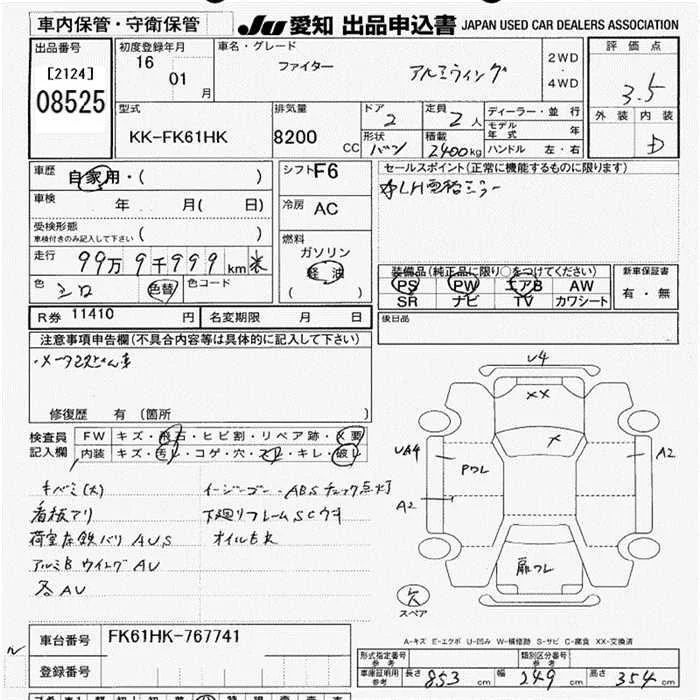 車内保管・守衛保管
JU 愛知 出品申込書 JAPAN USED CAR DEALERS ASSOCIATION
出品番号
[2124]
08525
初度登録年月
16
01
月
車名・グレード
ファイター アルミウィング
2WD
・
4WD
評価点
3.5
外装 内装
D
型式
KK-FK61HK
排気量
8200 CC
ドア
2
形状
バン
定員
2人
積載
2400kg
ディーラー・並行
モデル年式 年
ハンドル 左・右
車歴 自家用・( )
車検 年 月( 日)
受検形態
車検付きのみ記入して下さい ( )
走行 99万9千999km ※
色 シロ 色替 色コード
シフト F6
冷房 AC
燃料
ガソリン
軽油
( )
セールスポイント(正常に機能するものに限ります)
装備品(純正品に限り○をつけてください)
PS PW エアB AW
SR ナビ TV カワシート
新車保証書
有・無
R券 11410 円 名変期限 月 日
後日品
注意事項申告欄(不具合内容等は具体的に記入して下さい)
修復歴 有(箇所 )
検査員
記入欄
FW キズ・飛石・ヒビ割・リペア跡・X要
内装 キズ・汚レ・コゲ・穴・スレ・キレ・破レ
キバミ(大)
イージーゴー・ABSチェック点灯
看板アリ
下廻りフレームSCウキ
荷室床鉄バリ AUS
オイルモレ
アルミBウイング AU
各AU
U4
XX
X
UA4
Pワレ
A2
A2
扉ワレ
欠
スペア
A-キズ E-エクボ U-凹み W-補修跡 S-サビ C-腐食 XX-交換済
車台番号 FK61HK-767741
登録番号
形式指定番号
参考
類別区分番号
参考
車庫証明用
参考
長さ 853 cm 幅 249 cm 高さ 354 cm